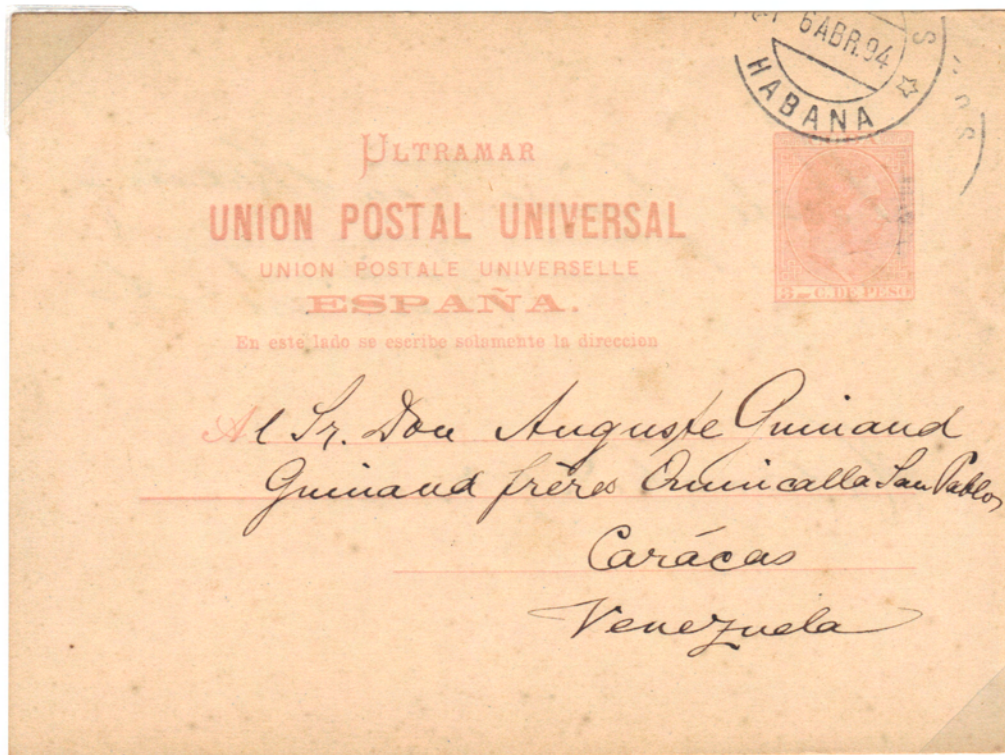 6 ABR. 94
HABANA
ULTRAMAR
UNION POSTAL UNIVERSAL
UNION POSTALE UNIVERSELLE
ESPAÑA.
3 C. DE PESO
En este lado se escribe solamente la direccion
Al Sr. Don Auguste Guinand
Guinand frères Quincalla San Pablo
Carácas
Venezuela